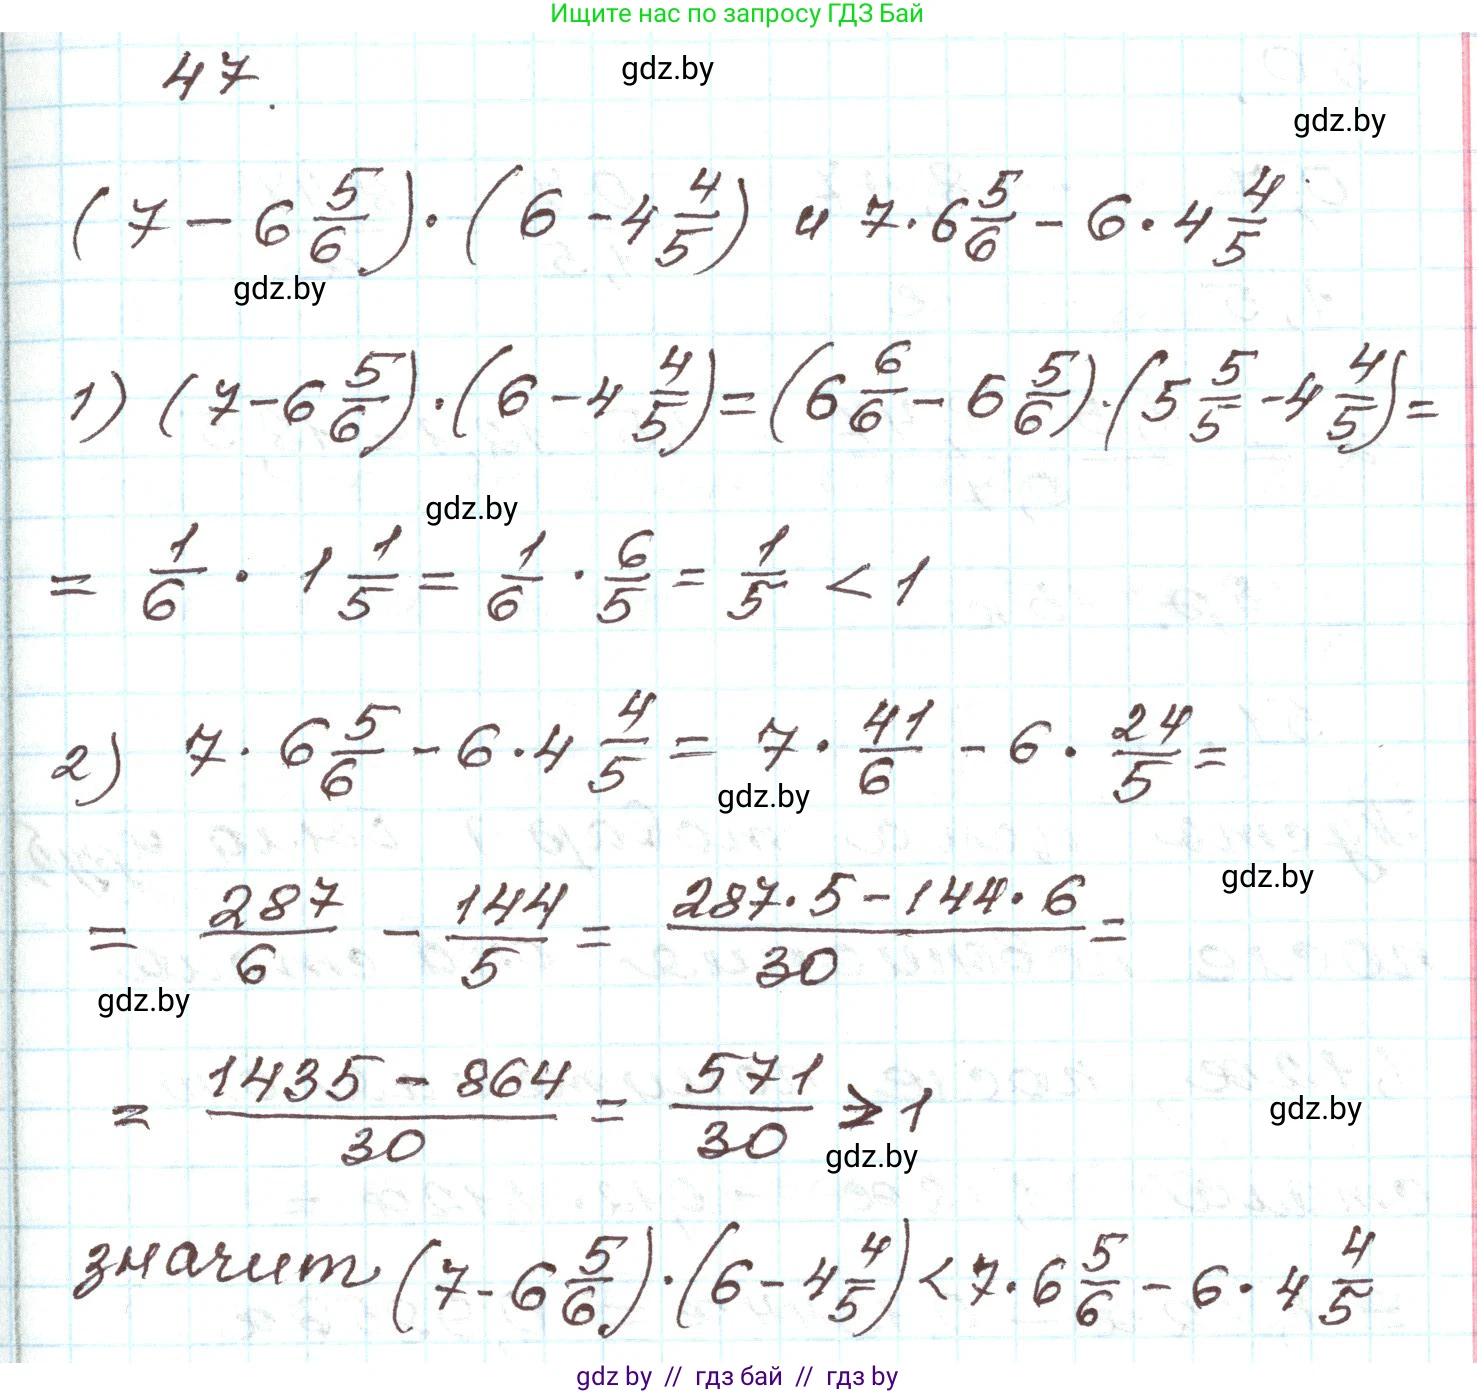 Ищите нас по запросу ГДЗ Бай
47.
gdz.by
gdz.by
(7 - 6 5/6) · (6 - 4 4/5) и 7 · 6 5/6 - 6 · 4 4/5
gdz.by
1) (7 - 6 5/6) · (6 - 4 4/5) = (6 6/6 - 6 5/6) · (5 5/5 - 4 4/5) =
gdz.by
= 1/6 · 1 1/5 = 1/6 · 6/5 = 1/5 < 1
2) 7 · 6 5/6 - 6 · 4 4/5 = 7 · 41/6 - 6 · 24/5 =
gdz.by
gdz.by
= 287/6 - 144/5 = (287 · 5 - 144 · 6)/30 =
gdz.by
= (1435 - 864)/30 = 571/30 > 1
gdz.by
gdz.by
значит (7 - 6 5/6) · (6 - 4 4/5) < 7 · 6 5/6 - 6 · 4 4/5
gdz by // гдз бай // гдз by